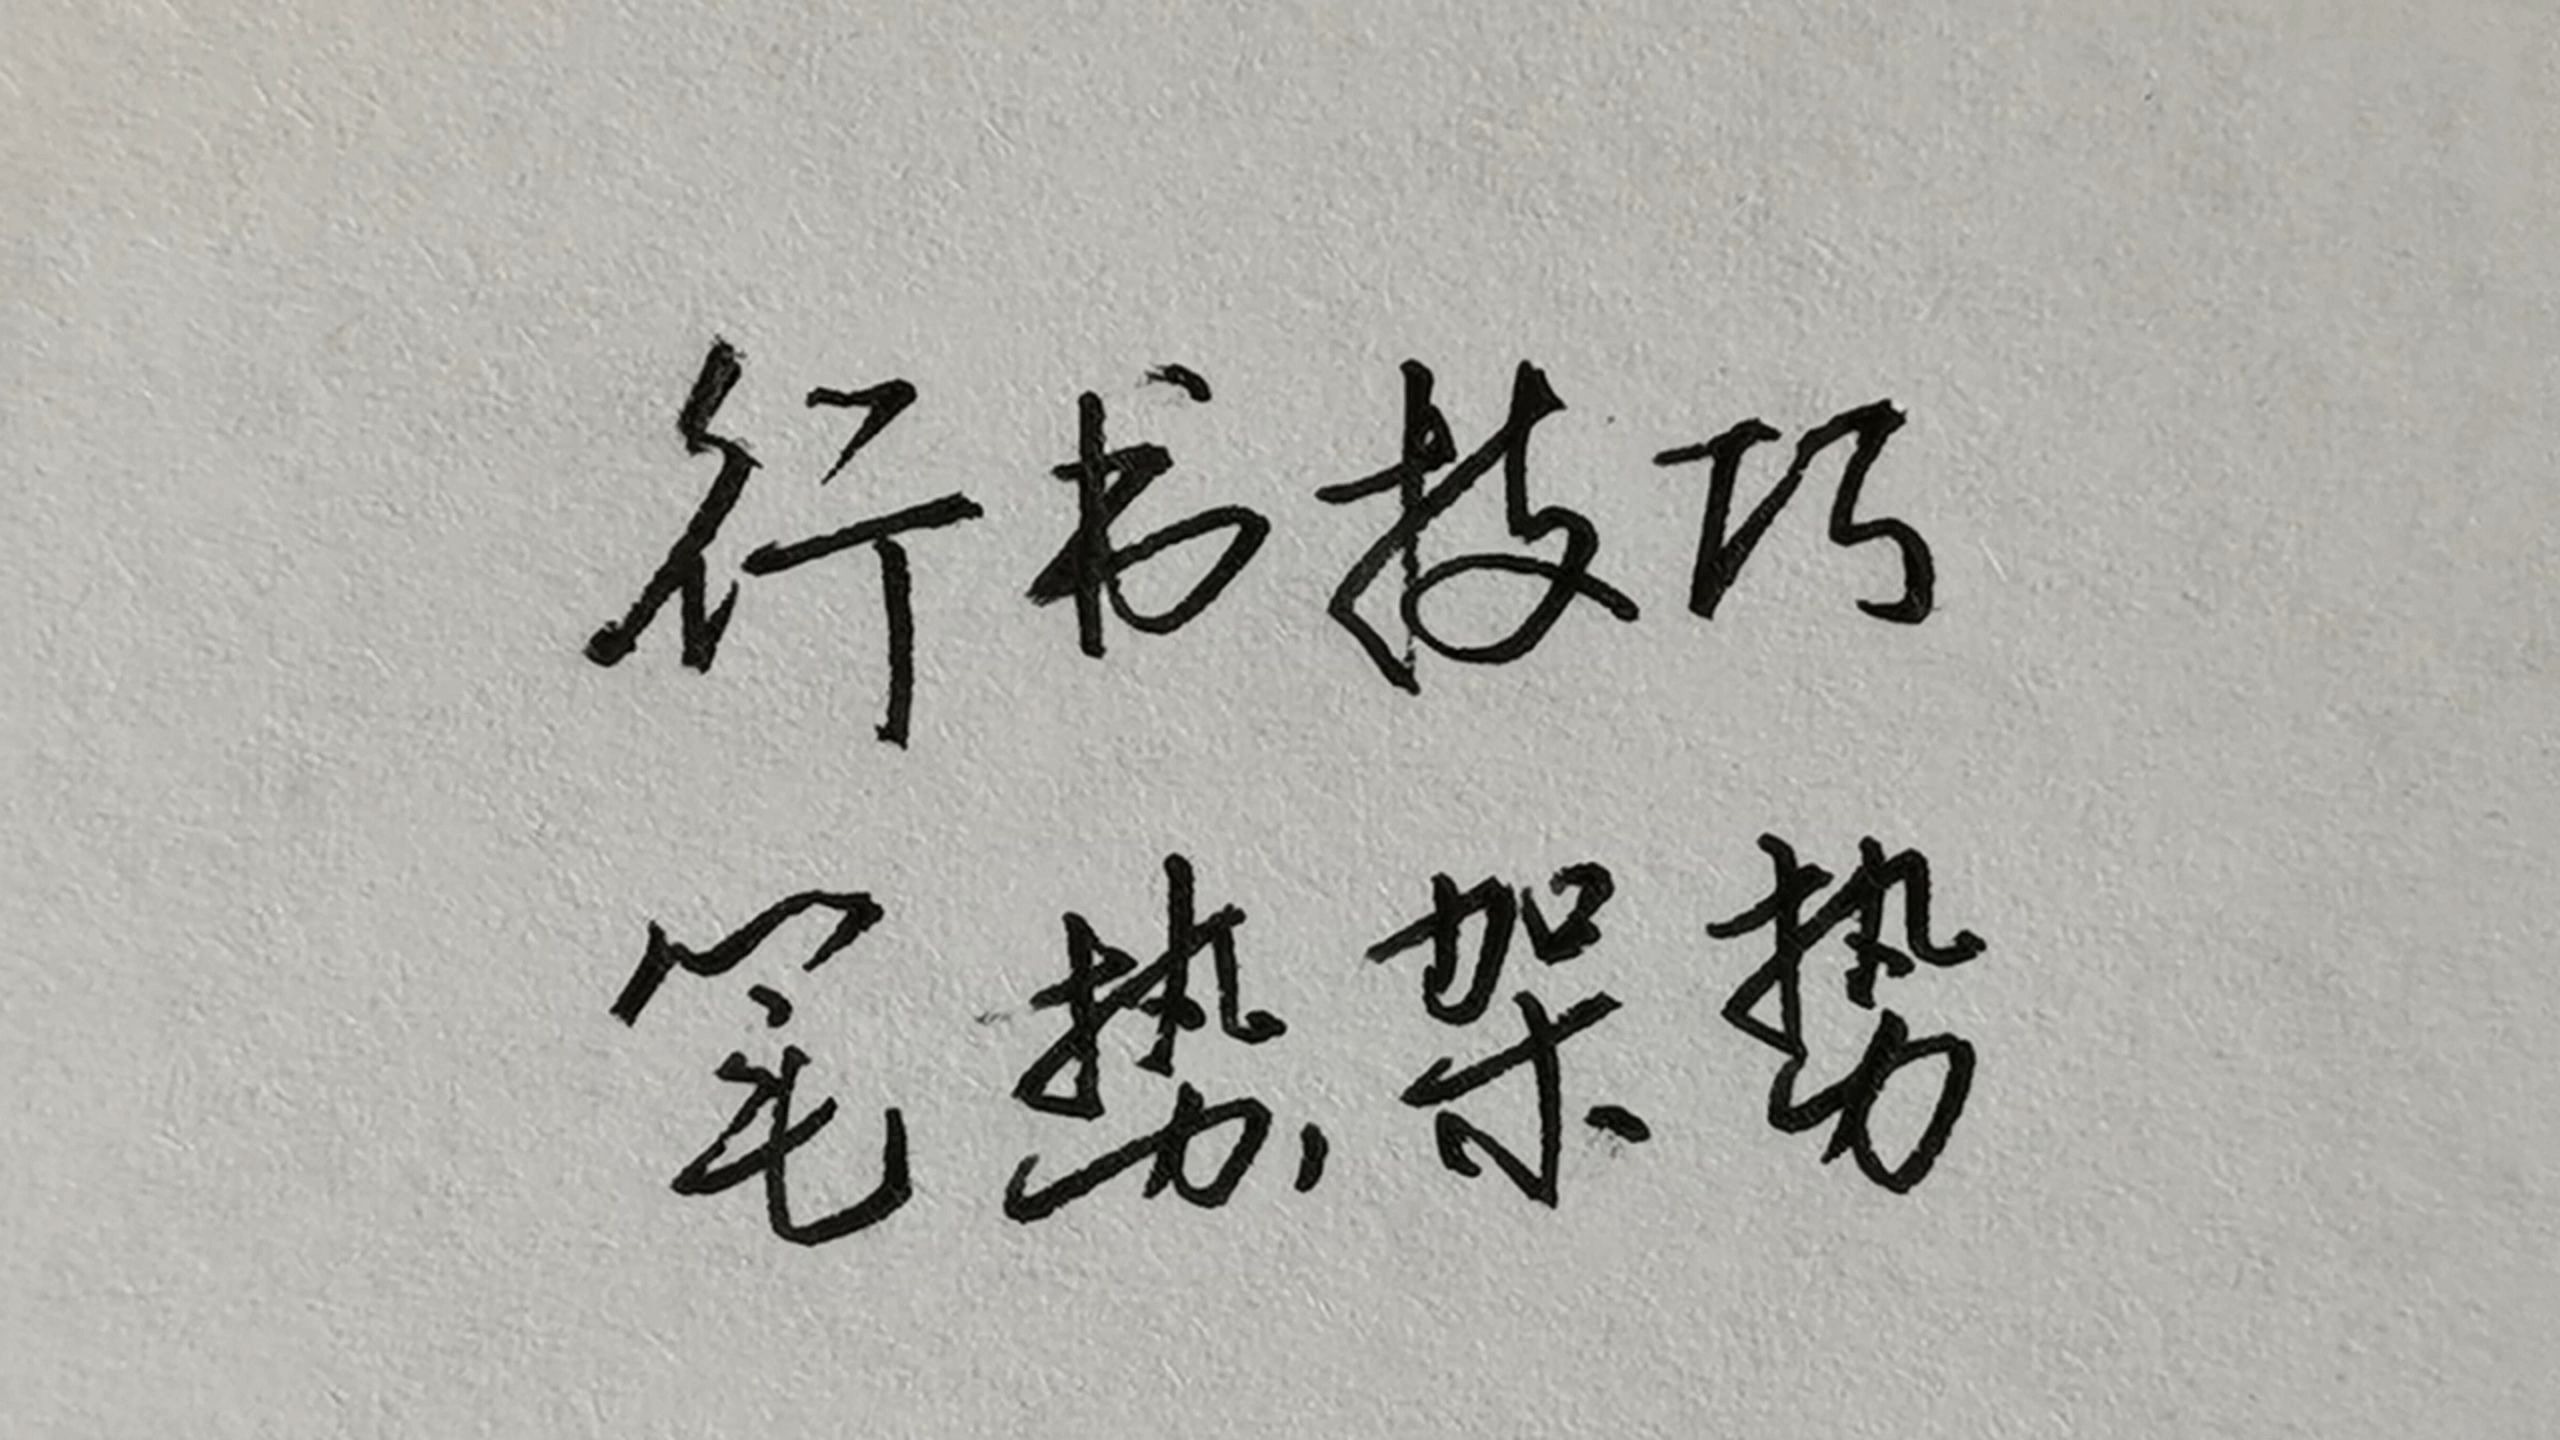 行书技巧
笔势,架势